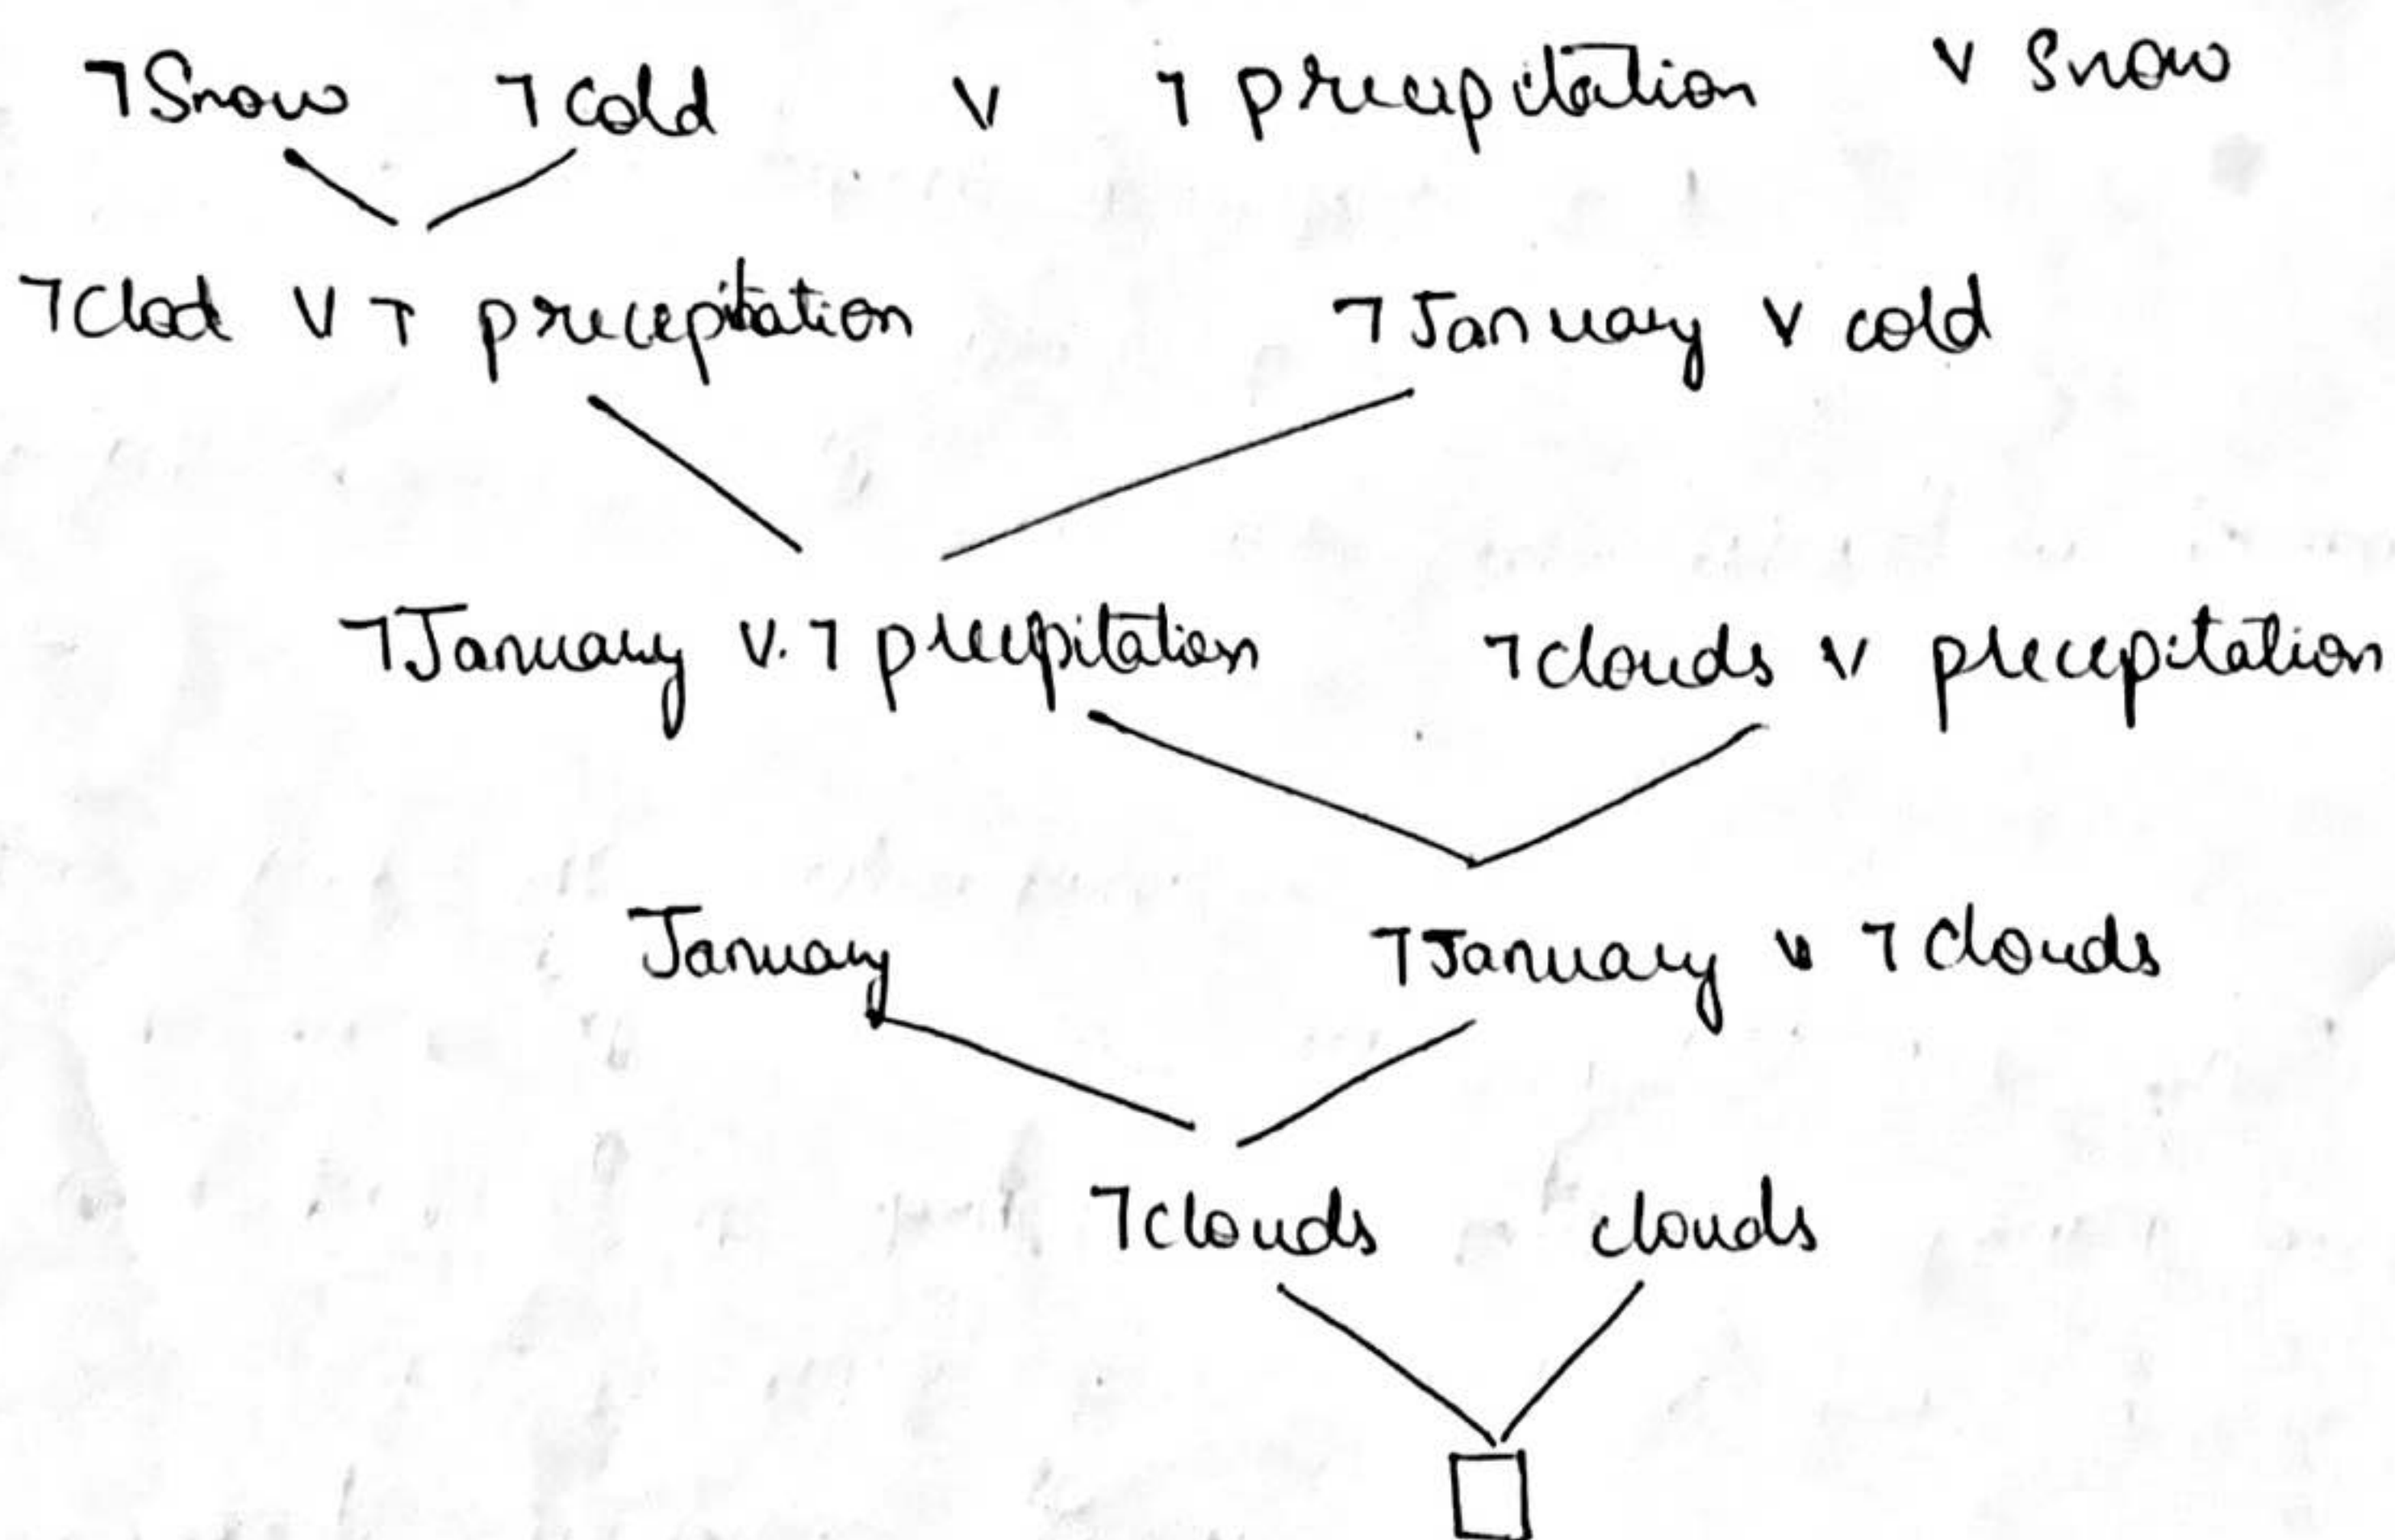 ¬Snow ¬cold ∨ ¬ precipitation ∨ Snow
¬Clod ∨ ¬ precepitation ¬January ∨ cold
¬January ∨.¬ precipitation ¬clouds ∨ precepitation
January ¬January ∨ ¬clouds
¬clouds clouds